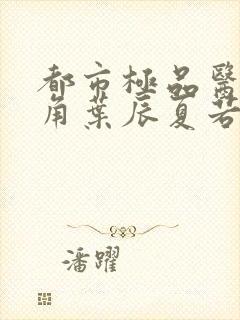 都市極品醫
角葉辰夏若
潘躍